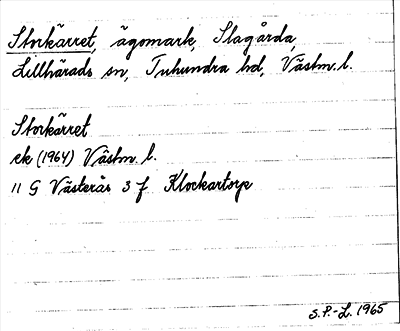 Storkärret, ägomark, Slagårda,
Lillhärads sn, Tuhundra hd, Västm. l.
Storkärret
ek (1964) Västm. l.
11 G Västerås 3 f Klockartorp
S.P.-L. 1965